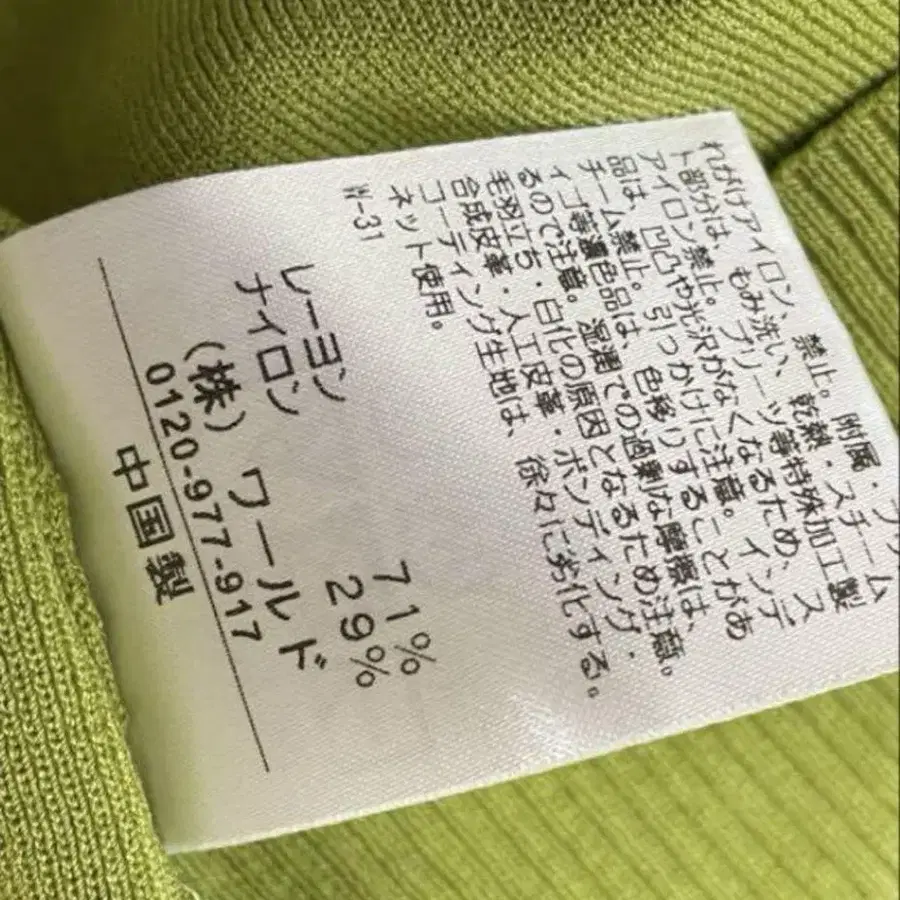 れがけアイロン、禁止。附属・プリ
ト部分は、もみ洗い、乾熱・スチーム
アイロン禁止。プリーツ等特殊加工製
品は、凹凸や光沢がなくなるため、ス
チーム禁止。引っかけに注意。インデ
ィゴ等濃色品は、色移りすることがあ
るので注意。湿潤での過剰な摩擦は、
毛羽立ち・白化の原因となるため注意。
合成皮革・人工皮革・ボンディング・
コーティング生地は、徐々に劣化する。
ネット使用。
W-31
レーヨン 71%
ナイロン 29%
(株) ワールド
0120-977-917
中国製